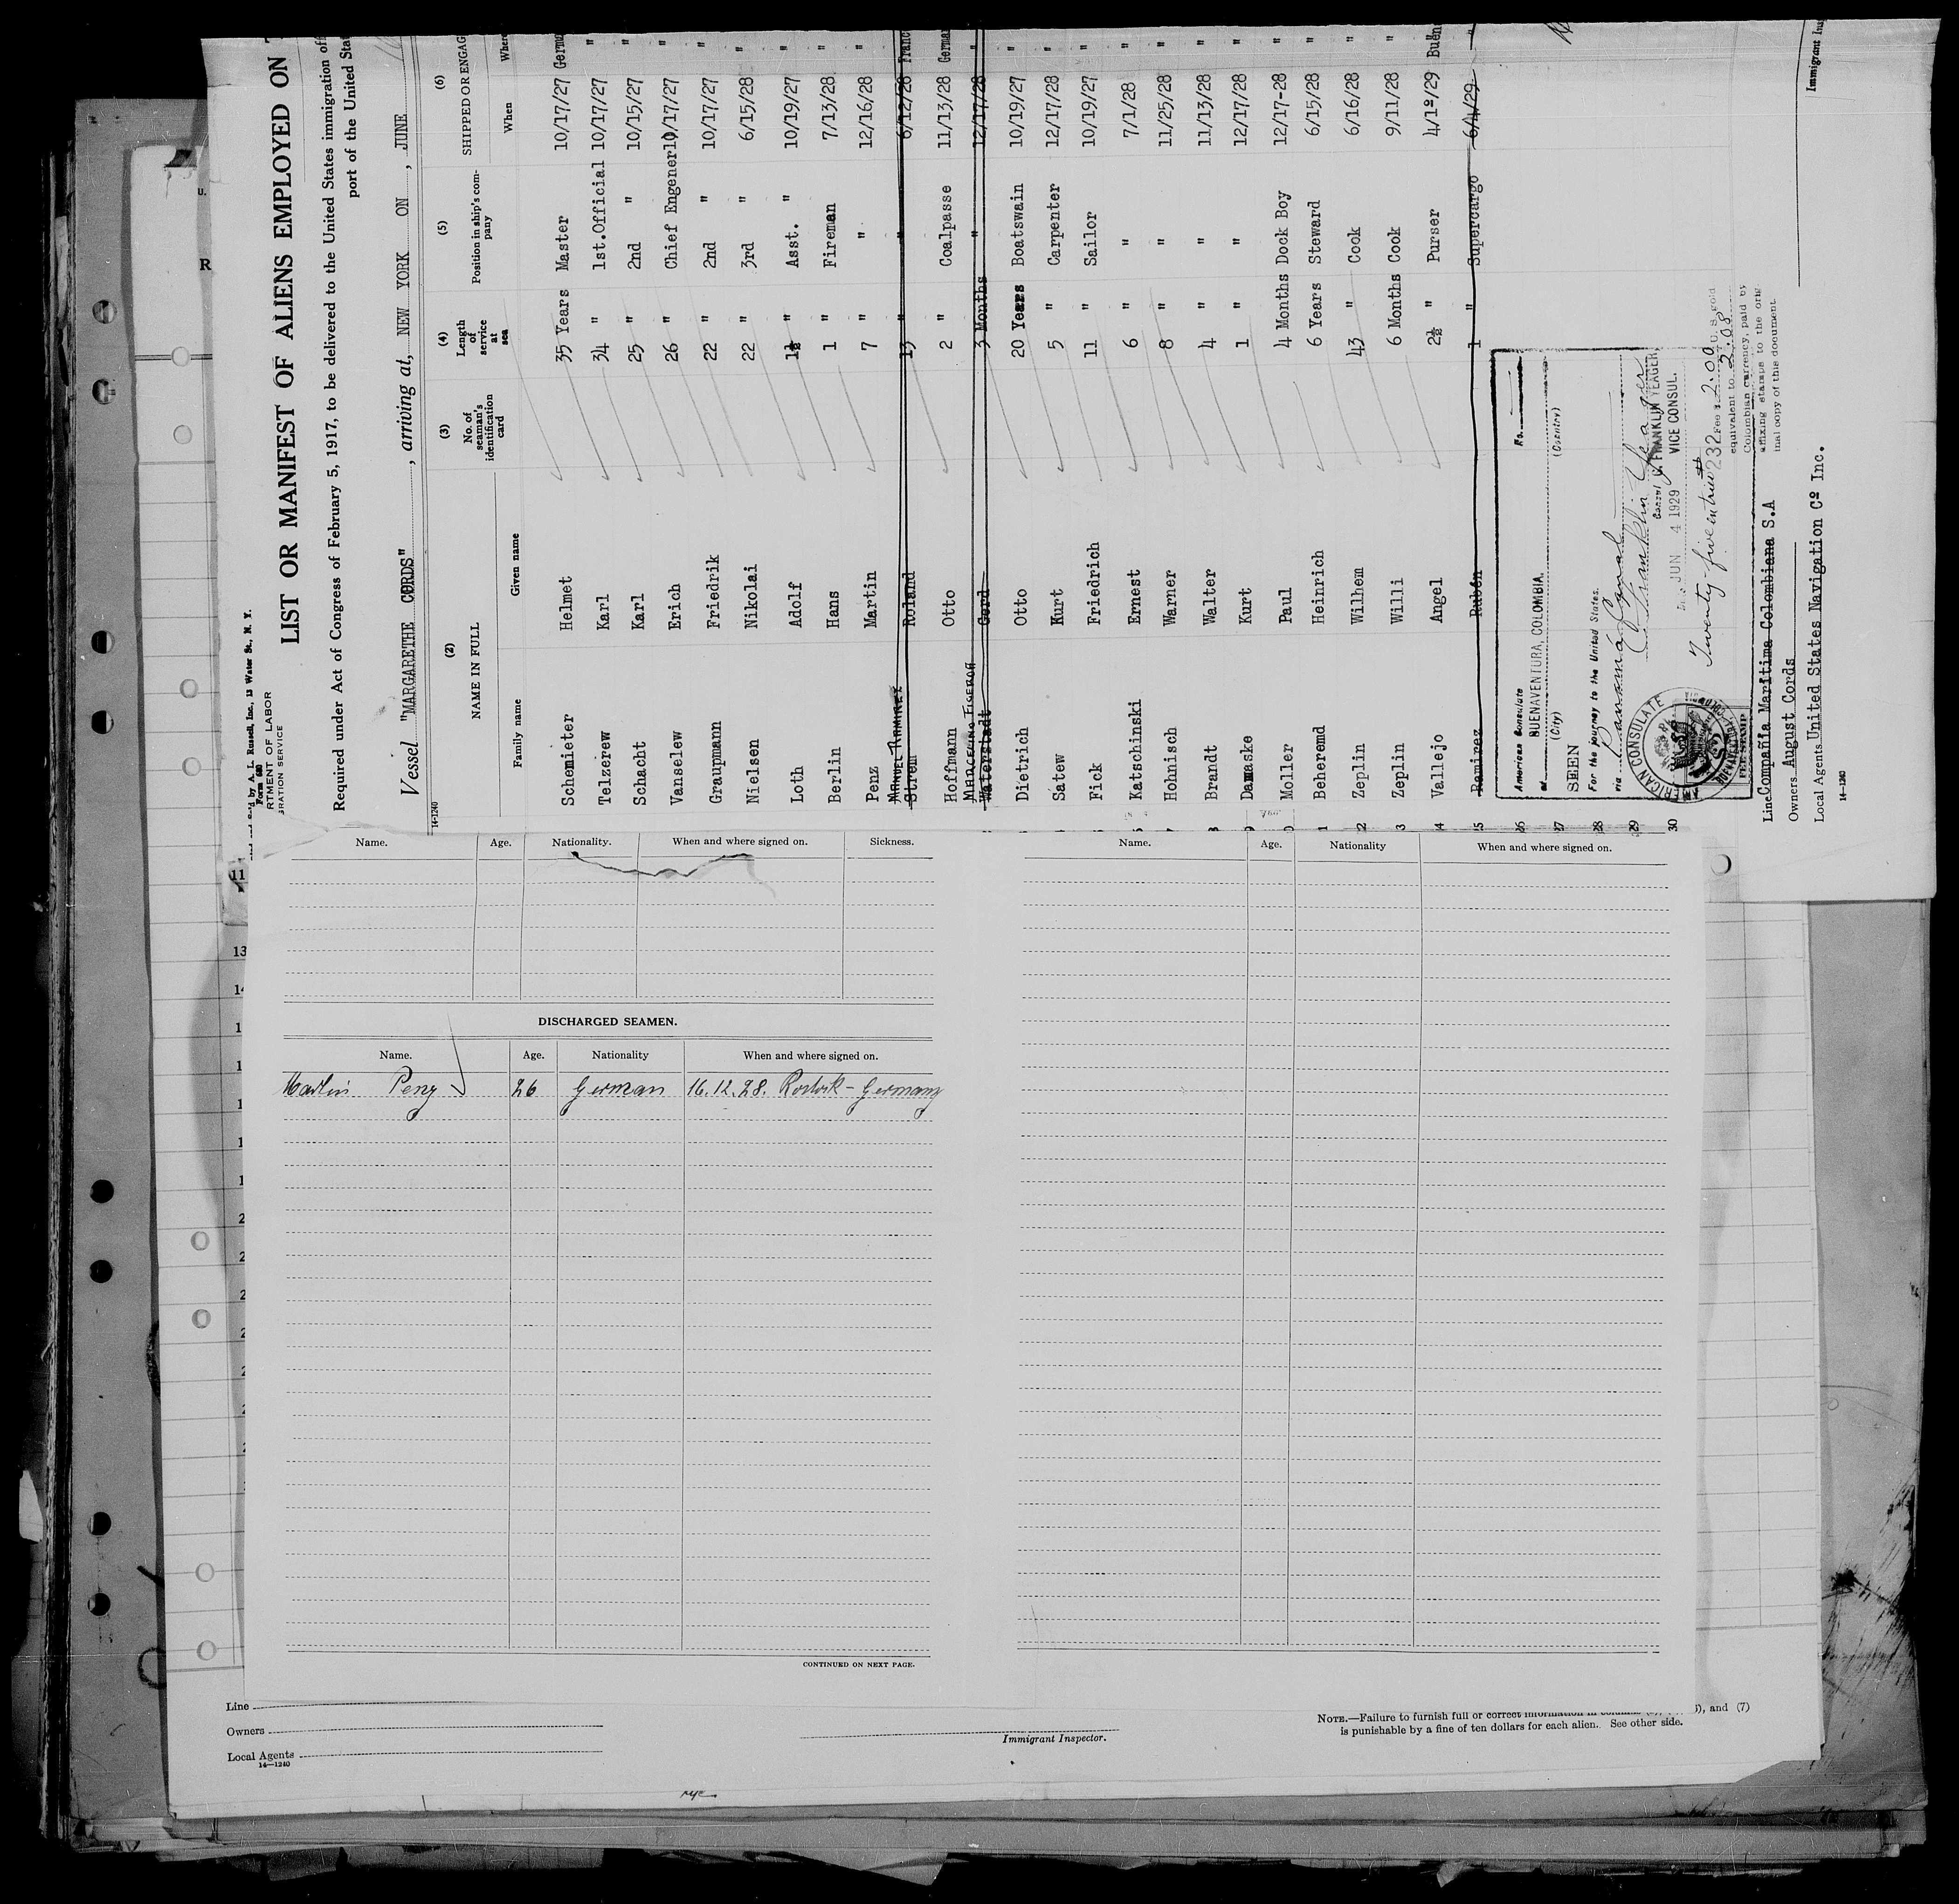 and Sold by A. L. Russell, Inc., 13 Water St., N. Y.
Form 680
RTMENT OF LABOR
GRATION SERVICE
LIST OR MANIFEST OF ALIENS EMPLOYED ON
Required under Act of Congress of February 5, 1917, to be delivered to the United States immigration of
port of the United Stat
Vessel "MARGARETHE CORDS", arriving at, NEW YORK ON, JUNE
14-1240
(2) (3) (4) (5) (6)
NAME IN FULL No. of seaman's identification card Length of service at sea Position in ship's company SHIPPED OR ENGAG
Family name Given name When Where
Schemieter Helmet 35 Years Master 10/17/27 Germ
Telzerew Karl 34 " 1st.Official 10/17/27 "
Schacht Karl 25 " 2nd " 10/15/27 "
Vanselew Erich 26 " Chief Engener 10/17/27 "
Graupmann Friedrik 22 " 2nd " 10/17/27 "
Nielsen Nikolai 22 " 3rd " 6/15/28 "
Loth Adolf 1½ " Asst. " 10/19/27 "
Berlin Hans 1 " Fireman 7/13/28 "
Penz Martin 7 " " 12/16/28 "
MANUEL RAMIREZ
Strem Roland 13 " " 6/12/28 Franc
Hoffmann Otto 2 " Coalpasse 11/13/28 German
MARCELINO FIGEROA
Waterstadt Gerd 3 Months " 12/17/28 "
Dietrich Otto 20 Years Boatswain 10/19/27 "
Satew Kurt 5 " Carpenter 12/17/28 "
Fick Friedrich 11 " Sailor 10/19/27 "
Katschinski Ernest 6 " " 7/1/28 "
Hohnisch Warner 8 " " 11/25/28 "
Brandt Walter 4 " " 11/13/28 "
Damaske Kurt 1 " " 12/17/28 "
Moller Paul 4 Months Dock Boy 12/17-28 "
Beheremd Heinrich 6 Years Steward 6/15/28 "
Zeplin Wilhem 43 " Cook 6/16/28 "
Zeplin Willi 6 Months Cook 9/11/28 "
Vallejo Angel 2½ " Purser 4/1º/29 Buen
Ramirez Rubén 1 " Supercargo 6/4/29 "
26
27
28
29
30
American Consulate No.
at BUENAVENTURA, COLOMBIA.
(City) (Country)
SEEN
For the journey to the United States.
via Panama Canal
Franklin Yeager
J. FRANKLIN YEAGER,
VICE CONSUL.
JUN 4 1929
Twenty-five
AMERICAN CONSULATE
232
Fee $ 2.00 U.S. gold
equivalent to 2.08
Colombian currency, paid by
affixing stamps to the orig
inal copy of this document.
Line Compañia Maritima Colombiana S.A
Owners August Cords
Local Agents United States Navigation Cº Inc.
14-1240
Immigrant Ins
Name. Age. Nationality. When and where signed on. Sickness.
DISCHARGED SEAMEN.
Name. Age. Nationality When and where signed on.
Martin Penz 26 German 16.12.28. Rostock - Germany
CONTINUED ON NEXT PAGE.
Name. Age. Nationality When and where signed on.
11
13
Line
Owners
Local Agents
14—1240
Immigrant Inspector.
NOTE.—Failure to furnish full or correct information in columns ), and (7)
is punishable by a fine of ten dollars for each alien. See other side.